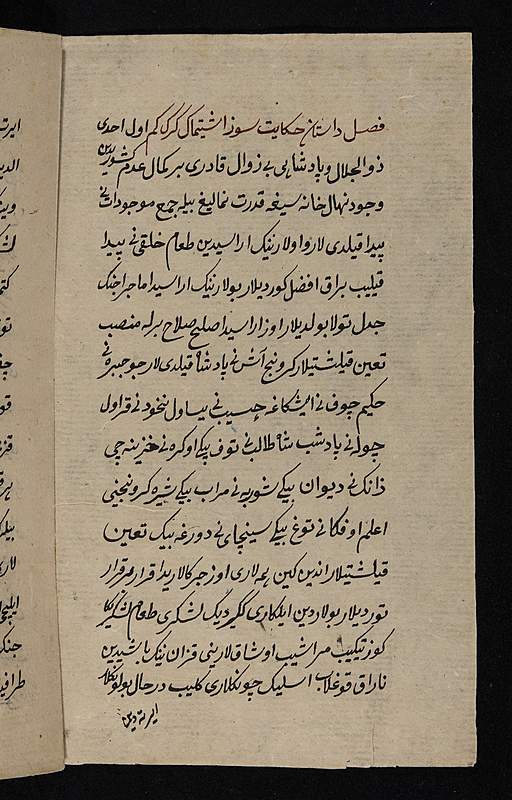 فصل داستان حکایت سوز اشیتماک کرک کم اول احدی
ذوالجلال و پادشاهی بی زوال قادری بر کمال عدم کشوریدین
وجود نهال خانه سیغه قدرت نمالیغ بیله جمع موجودات نی
پیدا قیلدی لار و اولارنینک اراسیدین طعام خلقی نی پیدا
قیلیب براق افضل کوردیلار بولارنینک اراسیدا ماجرا جنک
جدل تولا بولدیلار اوز اراسیدا اصلیح صلاح برله منصب
تعین قیلشتیلار کرونج آش نی پادشاه قیلدی لار جو جبره نی
حکیم چوف نی ایشکاغه حسیب نی یساول نخود نی قراول
چوله نی پادشب شاه طالب نی توف بیکی اوکره نی خزینه چی
دانک نی دیوان بیکی شوربه نی مراب بیکی شیره کرونجینی
اعلم اوفکانی توغ بیکی سینجابی نی دورغه بیک تعین
قیلشتیلار اندین کین هه لاری اوز جرکالاریدا قرار مرقرار
توردیلار بولاردین ایلکاری ککیردیک لشکری طعام لشکریکا
کوز تیکیب مراشیب اوشاق لارینی قزان نینک باشیدین
ناراق قوغلاب اسلیک چونکلاری کلیب درحال بولونکلار
ایرته دین